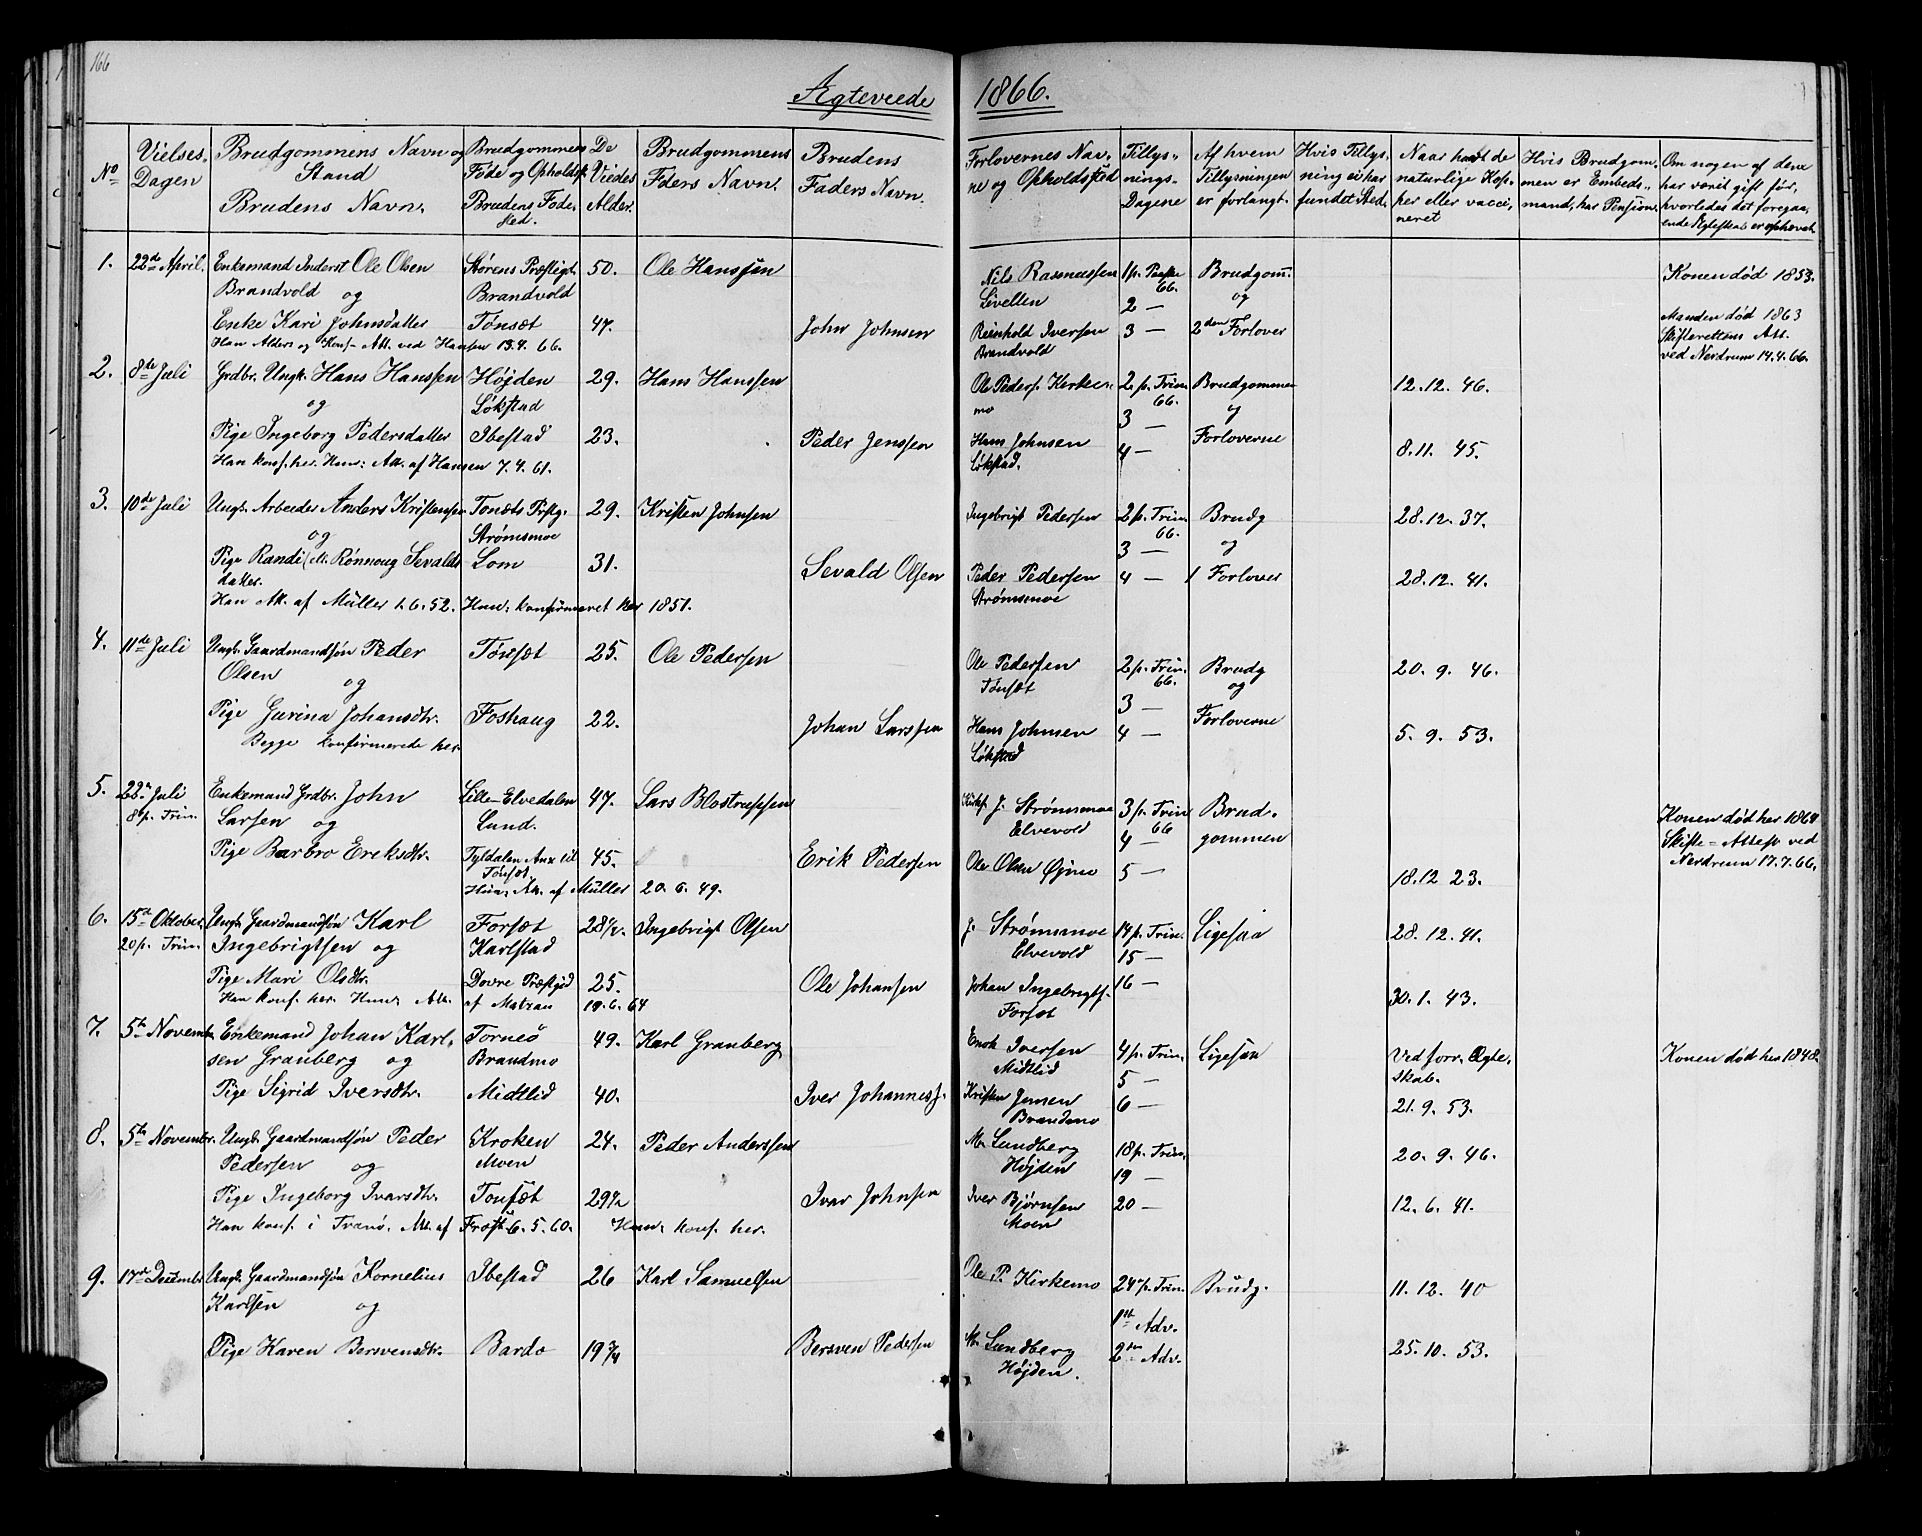 166
Ægteviede 1866.
No
Vielses-
Dagen
Brudgommens Navn og
Stand
Brudens Navn.
Brudgommens
Föde og Opholdsst.
Brudens Föde-
sted.
De
Viedes
Alder.
Brudgommens
Fders Navn.
Brudens
Faders Navn.
Forlovernes Nav-
ne og Opholdssted
Tillys-
nings-
Dagene
Af hvem
Tillysningen
er forlangt.
Hvis Tillys-
ning ei har
fundet Sted.
Naar havt de
naturlige Kop-
per eller vacci-
neret
Hvis Brudgom-
men er Embeds-
mand, har Pension.
Om nogen af dem
har været gift før,
hvorledes det foregaa-
ende Ægteskab er ophævet.
1. 22de April. Enkemand Inderst Ole Olsen Störens Præstegt. 50. Ole Hanssen Nils Rasmussen 1 p. Paaske Brudgom. Konen död 1853.
Brandvold og Brandvold Sivellen 66. og
2 —
Enke Kari Johnsdatter Tönsæt 47. John Johnsen Reinhold Iversen 3 — 2den Forlover Manden död 1863
Brandvold Skifterettens Att.
Han Alders og Konf. Att. ved Hansen 13.4.66. ved Nordrum 14.4.66.
2. 8de Juli Grdbr. Ungk. Hans Hanssen Höjden 29. Hans Hanssen Ole Peders. Kirke- 2 p. Trin. Brudgommen 12.12.46.
og Lökstad mo 66. og
3 —
Pige Ingeborg Pedersdatter Ibestad 23. Peder Jenssen Hans Johnsen 4 — Forloverne 8.11.45.
Han konf. her. Hun: Att. af Hansen 7.4.61. Lökstad.
3. 10de Juli Ungk. Arbeider Anders Kristensen Tönsets Pstg. 29. Kristen Johnsen Ingebrigt Pedersen 2 p. Trin. Brudg 28.12.37.
og Strömsmoe 66. og
3 —
Pige Randi (ell. Rönnoug Sevalds- Lom 31. Sevald Olsen Peder Pedersen 4 — 1 Forlover 28.12.41.
datter. Strömsmoe
Han Att. af Müller 1.6.52. Hun: konfirmeret her 1851.
4. 11de Juli Ungk. Gaardmandsön Peder Tönsæt 25. Ole Pedersen Ole Pedersen 2 p. Trin. Brudg 20.9.46.
Olsen og Tönsæt 66. og
3 —
Pige Gurina Johansdtr. Foshaug 22. Johan Larssen Hans Johnsen 4 — Forloverne 5.9.53.
Begge konfirmerede her. Lökstad
5. 22de Juli Enkemand Grdbr. John Lille-Elvedalen 47. Lars Blostrupsen Kirkes. J. Strömsmoe 3 p. Trin Brud- Konen död her 1864
8 p. Trin. Larsen og Lund. Elvevold 66 Skifte-Attest ved
4 — gommen Nordrum 17.7.66.
Pige Barbro Eriksdtr. Tyldalen Anx til 45. Erik Pedersen Ole Olsen Øjmo 5 — 18.12 23.
Tönset.
Hun: Att. af Müller 20.6.49.
6. 15de Oktober Ungk. Gaardmandsön Karl Forsæt 28½. Ingebrigt Olsen J. Strömsmoe 14 p. Trin. Ligesaa 28.12.41.
20 p. Trin. Ingebrigtsen og Karlstad Elvevold 15 —
Pige Mari Olsdtr. Dovre Præstgjd 25. Ole Johansen Johan Ingebrigts. 16 — 30.1.43.
Han konf. her. Hun: Att. af Matzau 19.6.64 Forsæt
7. 5te Novembr Enkemand Johan Karl- Torneö 49. Karl Granberg Enok Iversen 4 p. Trin. Ligesaa Ved forr. Ægte- Konen död her 1848.
sen Granberg og Brandmo Midtlid 5 — skab.
Pige Sigrid Iversdtr. Midtlid 40. Iver Johanness. Kristen Jensen 6 — 21.9.53.
Brandmo
8. 5te Novembr. Ungk. Gaardmandsön Peder Kroken 24. Peder Anderssen M. Lundberg 18 p. Trin. 20.9.46.
Pedersen og Moen Højden 19 —
Pige Ingeborg Ivarsdtr. Tonsæt 29½ Ivar Johnsen Iver Björnsen 20 — 12.6.41.
Han konf. i Tranö. Att. af Frost 6.5.60. Hun: konf. her. Moen
9. 17de Decembr Ungk. Gaardmandsön Kornelius Ibestad 26 Karl Samuelsen Ole P. Kirkemo 24 p. Trin. Brudg. 11.12.40
Karlsen og 1ste Adv.
Pige Karen Bersvensdtr. Bardo 19¾ Bersven Pedersen M. Lundberg 2den Adv. 25.10.53.
Højden.